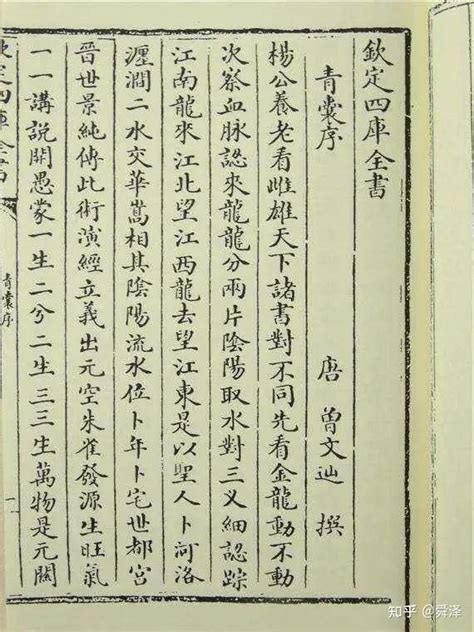 欽定四庫全書
青囊序 唐 曾文辿 撰
楊公養老看雌雄天下諸書對不同先看金龍動不動
次察血脉認來龍龍分兩片陰陽取水對三义細認踪
江南龍來江北望江西龍去望江東是以聖人卜河洛
瀍澗二水交華嵩相其陰陽流水位卜年卜宅世都宫
晉世景純傳此術演經立義出元空朱雀發源生旺氣
一一講說開愚蒙一生二兮二生三三生萬物是元關
欽定四庫全書
青囊序
知乎 @舜泽